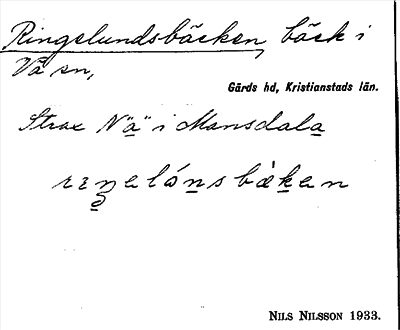 Ringelundsbäcken, bäck i
Vä sn,
Gärds hd, Kristianstads län.
Strax N"ä" i Mansdala
NILS NILSSON 1933.